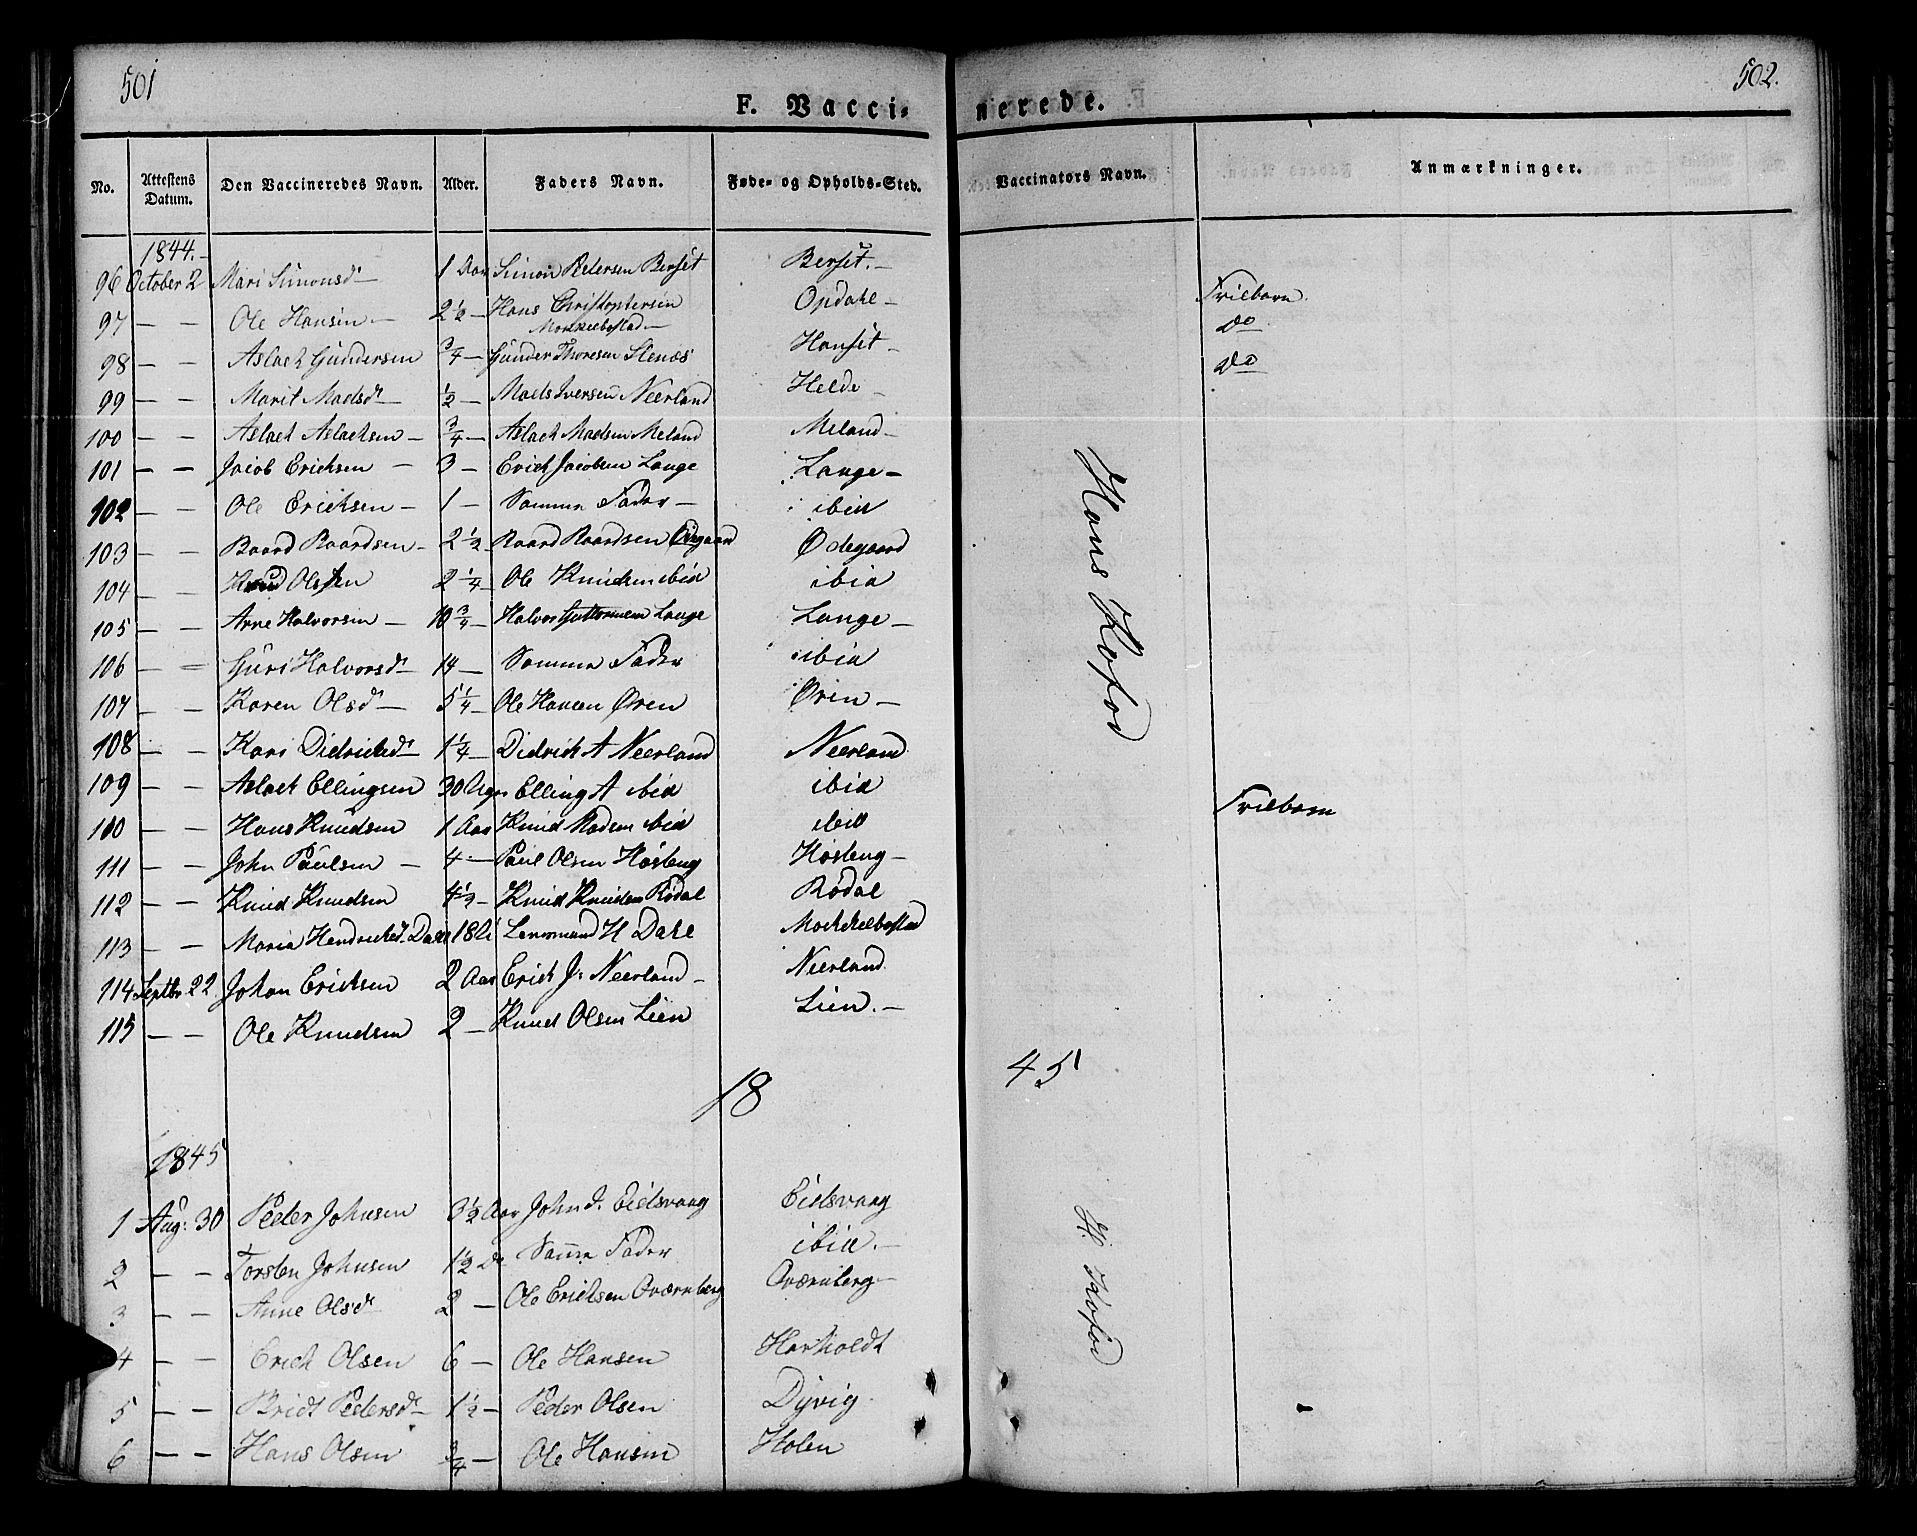 501
502.
F. Vacci-
nerede.
No. Attestens Datum. Den Vaccineredes Navn. Alder. Faders Navn. Føde- og Opholds-Sted. Vaccinators Navn. Anmærkninger.
1844.
96 October 2 Mari Simonsd. 1 Aar Simon Pedersen Berset Berset.
97 — — Ole Hansen 2 1/2 Hans Christophersen Opdahl Friebarn.
98 — — Aslach Gundersen 3/4 Gunder Thoresen Hanset do
99 — — Marit Madsd. 1/2 Mads Iversen Neerland Helde
100 — — Aslach Aslachsen 3/4 Aslach Madsen Meland Meland
101 — — Jacob Erichsen 3 Erich Jacobsen Lange Lange
102 — — Ole Erichsen 1 Samme Fader ibid
103 — — Baard Baardsen 2 1/2 Baard Baardsen Ødegaard Ødegaard
104 — — Knud Olsen 2 1/4 Ole Knudsen ibid ibid
105 — — Arne Halvorsen 10 3/4 Halvor Guttormsen Lange Lange
106 — — Guri Halvorsd. 14 Samme Fader ibid
107 — — Karen Olsd. 5 1/4 Ole Hansen Øren Øren
108 — — Kari Didrichsd. 1 1/4 Didrich A Neerland Neerland
109 — — Aslach Ellingsen 30 Uger Elling A ibid ibid Friebarn
110 — — Hans Knudsen 1 Aar Knud ibid ibid
111 — — John Paulsen 4 Paul Olsen
112 — — Knud Knudsen 4 1/2 Knud Knudsen Rødal Rødal
113 — — Maria Hendrichsd. Dahl 18 Lensmand H Dahl
114 Septbr. 22 Johan Erichsen 2 Aar Erich J. Neerland Neerland
115 — — Ole Knudsen 2 Knud Olsen Lien Lien.
Hans Kofod
18
45
1845
1 Aug: 30 Peder Johnsen 3 1/2 Aar John J. Eidsvaag Eidsvaag
2 — — Torsten Johnsen 1 1/2 Do Samme Fader ibid.
3 — — Anne Olsd. 2 Ole Erichsen Qværnberg Qværnberg
4 — — Erich Olsen 6 Ole Hansen Harholdt
5 — — Bridt Pedersd. 1 1/2 Peder Olsen Dyvig
6 — — Hans Olsen 3/4 Ole Hansen Holen
H. Kofod